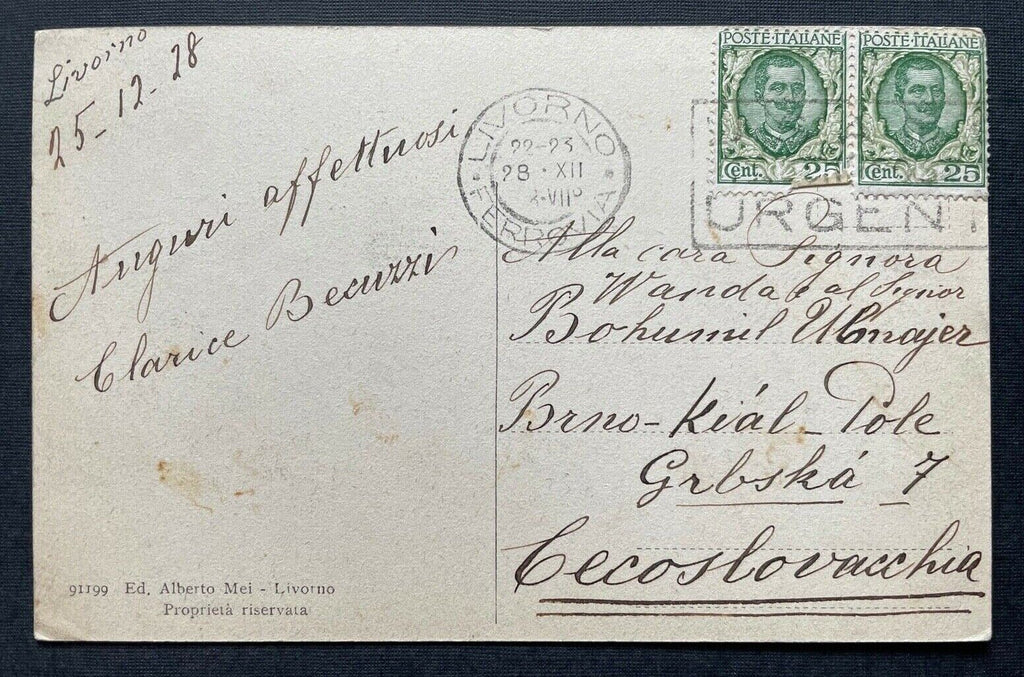 Livorno
25-12-28
Auguri affettuosi
Clarice Becuzzi
91199 Ed. Alberto Mei - Livorno
Proprietà riservata
POSTE·ITALIANE
Cent. 25
POSTE·ITALIANE
Cent. 25
LIVORNO
22-23
28·XII
FERROVIA
URGEN
Alla cara Signora
Wanda e al Signor
Bohumil
Brno-Kiál-Pole
Grbská 7
Cecoslovacchia